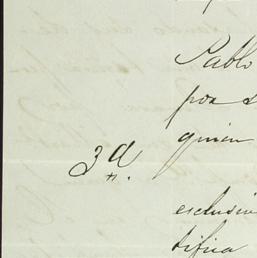 Pablo
por s
quien
3a
exclusiv
tifica